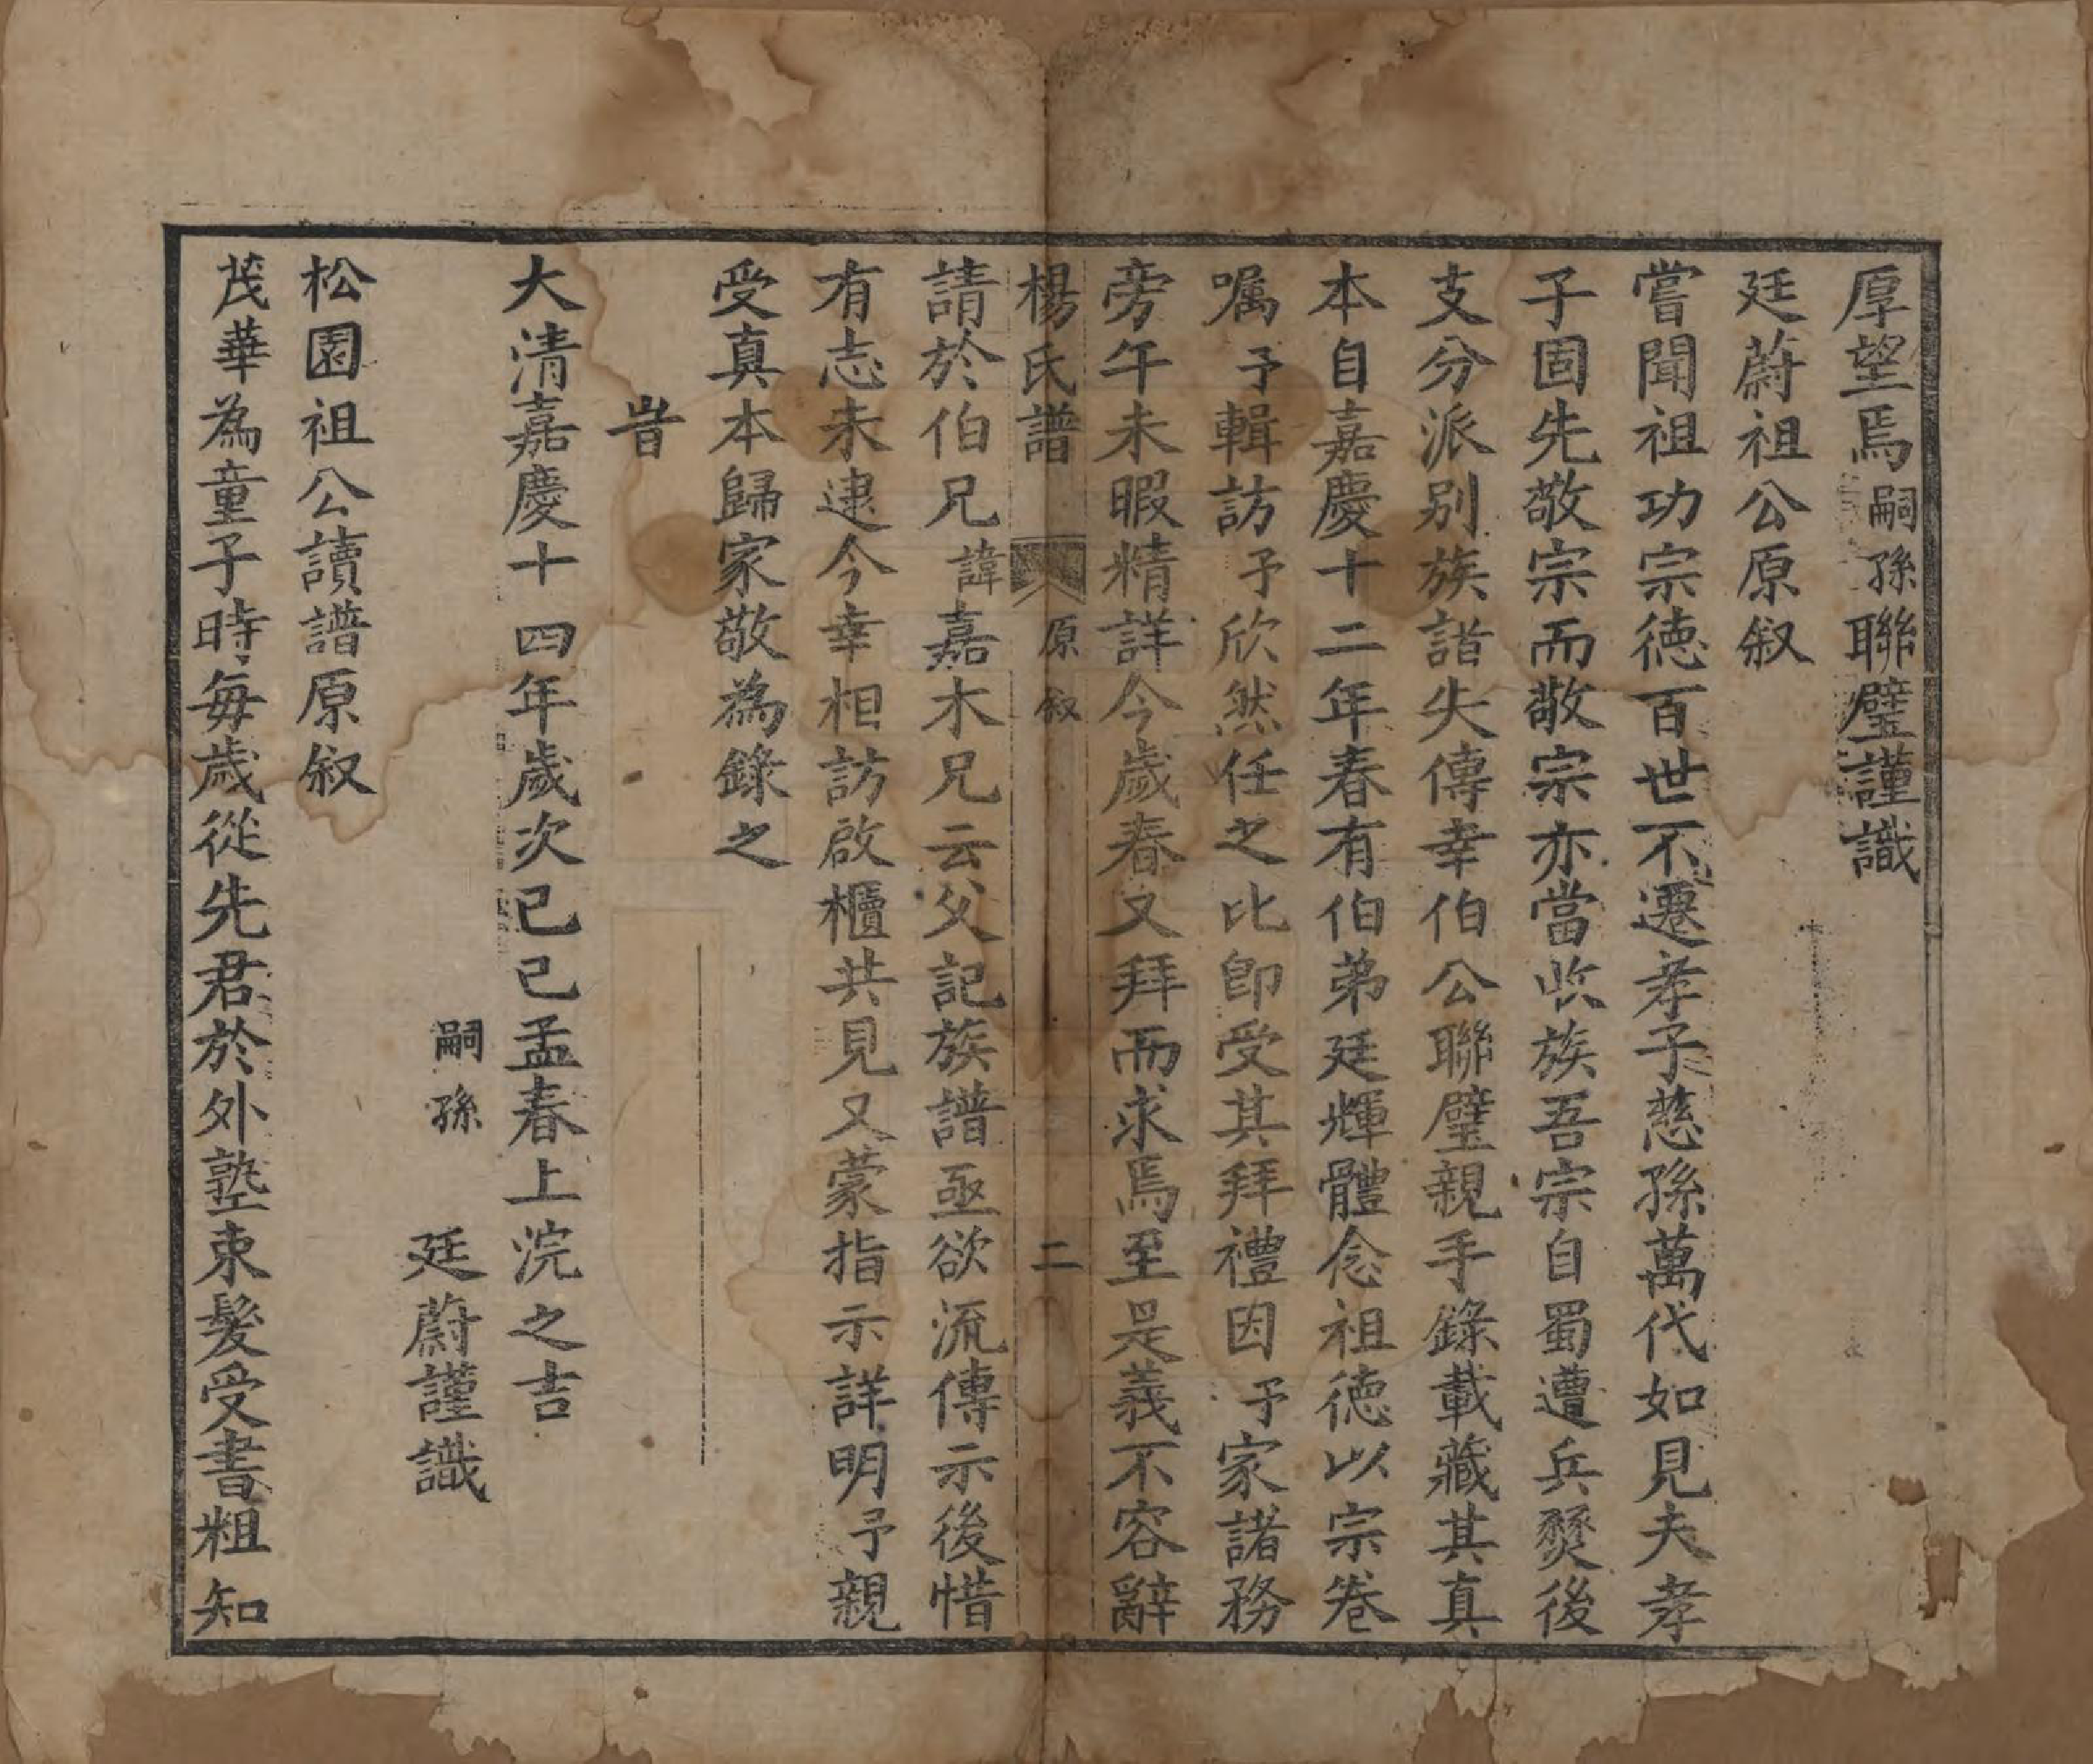 厚望焉嗣孫聯璧謹識
廷蔚祖公原叙
嘗聞祖功宗德百世不遷孝子慈孫萬代如見夫孝
子固先敬宗而敬宗亦當收族吾宗自蜀遭兵燹後
支分派别族譜失傳幸伯公聯璧親手錄載藏其真
本自嘉慶十二年春有伯弟廷輝體念祖德以宗卷
嘱予輯訪予欣然任之比卽受其拜禮因予家諸務
旁午未暇精詳今歲春又拜而求焉至是義不容辭
楊氏譜 原叙 二
請於伯兄諱嘉木兄云父記族譜亟欲流傳示後惜
有志未逮今幸相訪啟櫃共見又蒙指示詳明予親
受真本歸家敬為錄之
旹
大清嘉慶十四年歲次己巳孟春上浣之吉
嗣孫 廷蔚謹識
松園祖公讀譜原叙
茂華為童子時每歲從先君於外塾束髮受書粗知